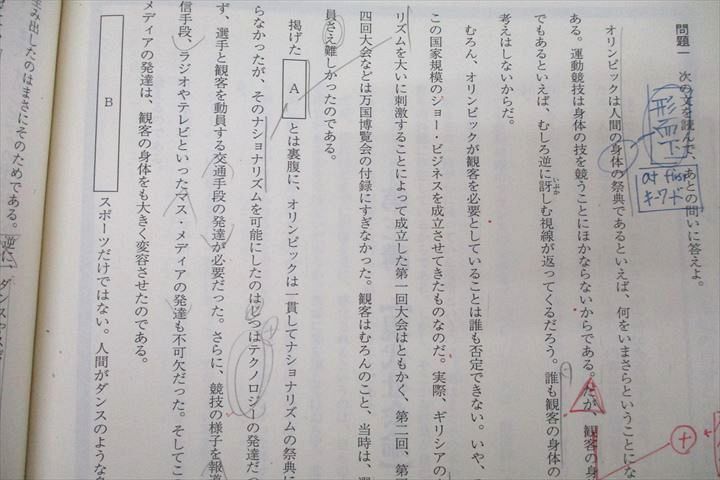 問題一　次の文を読んで、あとの問いに答えよ。
形而下
at first
キーワード
オリンピックは人間の身体の祭典であるといえば、何をいまさらということにな
ある。運動競技は身体の技を競うことにほかならないからである。だが、観客の身
でもあるといえば、むしろ逆に訝しむ視線が返ってくるだろう。誰も観客の身体の
いぶか
考えはしないからだ。
むろん、オリンピックが観客を必要としていることは誰も否定できない。いや、
この国家規模のショー・ビジネスを成立させてきたものなのだ。実際、ギリシアの
リズムを大いに刺激することによって成立した第一回大会はともかく、第二回、第
四回大会などは万国博覧会の付録にすぎなかった。観客はむろんのこと、当時は、選
員さえ難しかったのである。
掲げた A とは裏腹に、オリンピックは一貫してナショナリズムの祭典に
らなかったが、そのナショナリズムを可能にしたのはじつはテクノロジーの発達だっ
ず、選手と観客を動員する交通手段の発達が必要だった。さらに、競技の様子を報道
信手段、ラジオやテレビといったマス・メディアの発達も不可欠だった。そしてこ
メディアの発達は、観客の身体をも大きく変容させたのである。
B スポーツだけではない。人間がダンスのような
生み出したのはまさにそのためである。逆に、ダンスやスポ